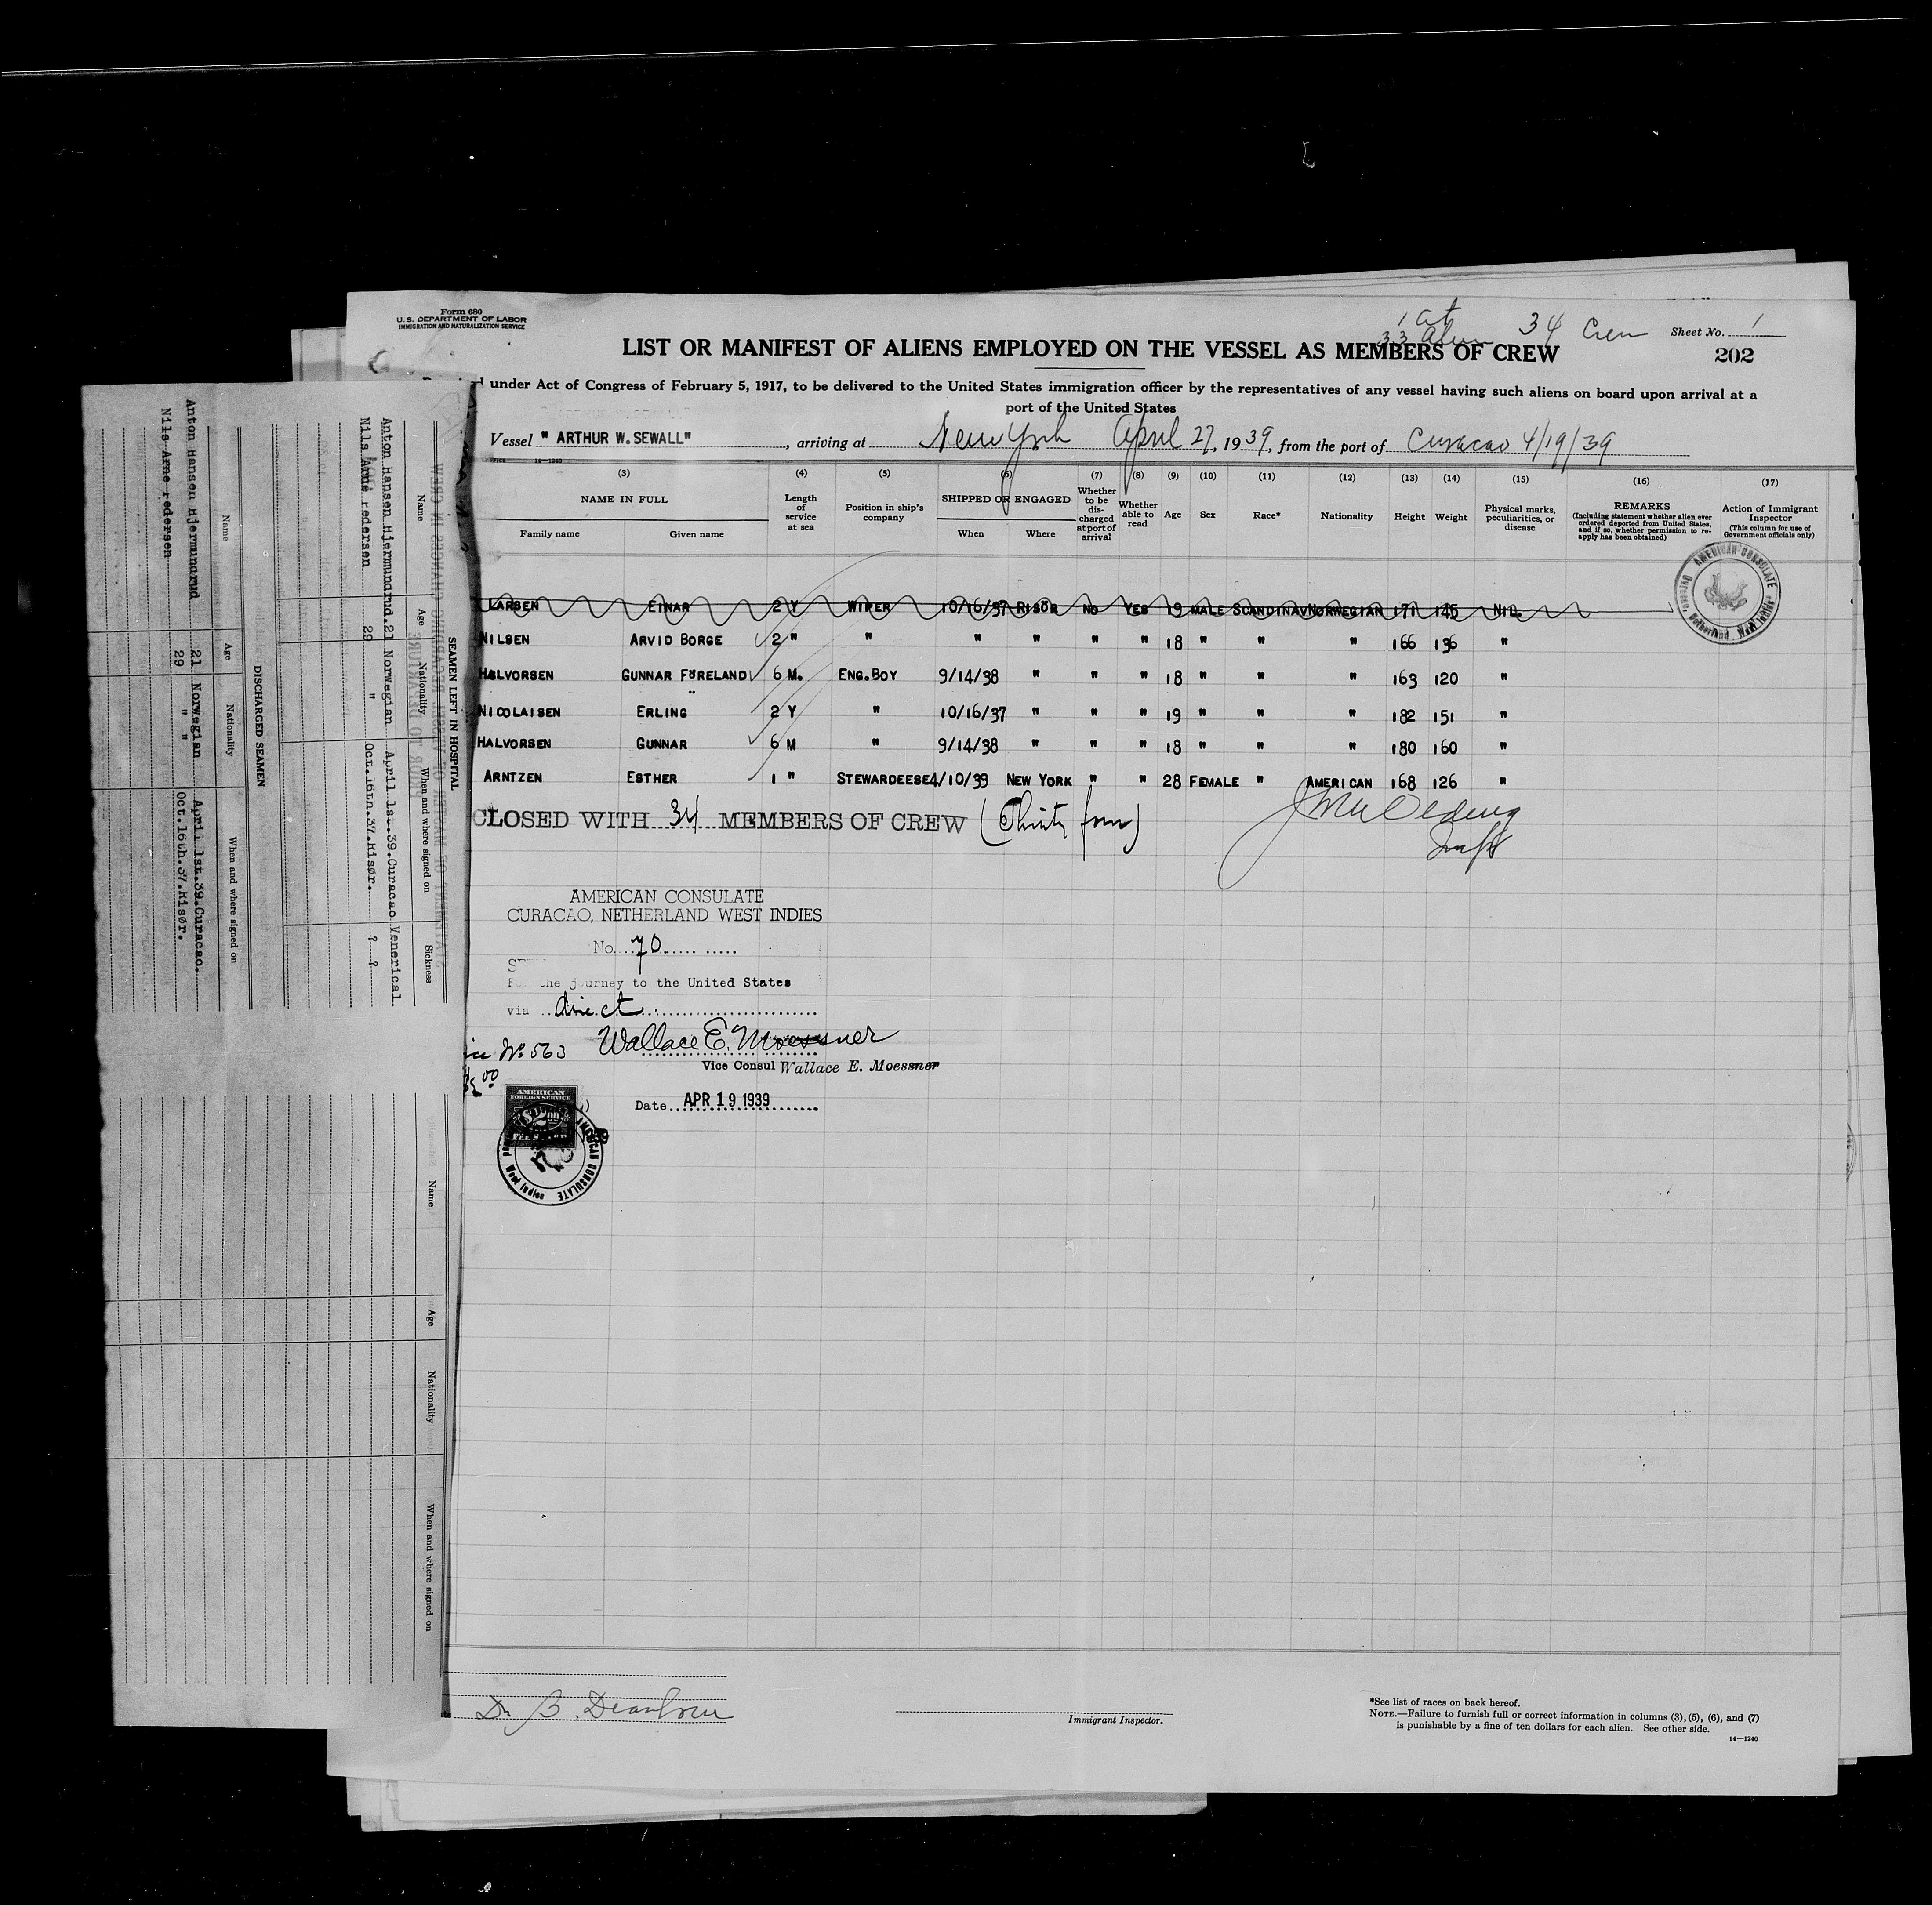 Form 680
U. S. DEPARTMENT OF LABOR
IMMIGRATION AND NATURALIZATION SERVICE
1 at
33 alien 34 Crew Sheet No. 1
LIST OR MANIFEST OF ALIENS EMPLOYED ON THE VESSEL AS MEMBERS OF CREW
202
under Act of Congress of February 5, 1917, to be delivered to the United States immigration officer by the representatives of any vessel having such aliens on board upon arrival at a
port of the United States
Vessel " ARTHUR W. SEWALL" , arriving at New York April 27, 1939, from the port of Curacao 4/19/39
14—1240
(3) (4) (5) (6) (7) (8) (9) (10) (11) (12) (13) (14) (15) (16) (17)
NAME IN FULL
Family name Given name
Length of service at sea
Position in ship's company
SHIPPED OR ENGAGED
When Where
Whether to be discharged at port of arrival
Whether able to read
Age
Sex
Race*
Nationality
Height
Weight
Physical marks, peculiarities, or disease
REMARKS
(Including statement whether alien ever ordered deported from United States, and if so, whether permission to reapply has been obtained)
Action of Immigrant Inspector
(This column for use of Government officials only)
LARSEN EINAR 2 Y WIPER 10/16/37 RISÖR NO YES 19 MALE SCANDINAV NORWEGIAN 171 145 NIL
NILSEN ARVID BORGE 2 " " " " " " 18 " " " 166 136 "
HALVORSEN GUNNAR FÖRELAND 6 M. ENG. BOY 9/14/38 " " " 18 " " " 163 120 "
NICOLAISEN ERLING 2 Y " 10/16/37 " " " 19 " " " 182 151 "
HALVORSEN GUNNAR 6 M " 9/14/38 " " " 18 " " " 180 160 "
ARNTZEN ESTHER 1 " STEWARDEESE 4/10/39 NEW YORK " " 28 FEMALE " AMERICAN 168 126 "
CLOSED WITH 34 MEMBERS OF CREW (Thirty four)
AMERICAN CONSULATE
CURACAO, NETHERLAND WEST INDIES
No. 70
the journey to the United States
via direct
No 563
Wallace E. Moessner
Vice Consul Wallace E. Moessner
Date APR 19 1939
AMERICAN
FOREIGN SERVICE
AMERICAN CONSULATE
West Indies
AMERICAN CONSULATE
Curacao, Netherland West Indies
Immigrant Inspector.
*See list of races on back hereof.
NOTE.—Failure to furnish full or correct information in columns (3), (5), (6), and (7)
is punishable by a fine of ten dollars for each alien. See other side.
14—1240
SEAMEN LEFT IN HOSPITAL
Name Age Nationality When and where signed on Sickness
Anton Hansen Hjermundrud. 21 Norwegian April 1st.39.Curacao Venerical
Nils Arne Pedersen 29 " Oct.16th.37.Risør. ? ?
DISCHARGED SEAMEN
Name Age Nationality When and where signed on
Anton Hansen Hjermundrud 21 Norwegian April 1st.39.Curacao.
Nils Arne Pedersen 29 " " Oct.16th.37.Risør.
Name Age Nationality When and where signed on